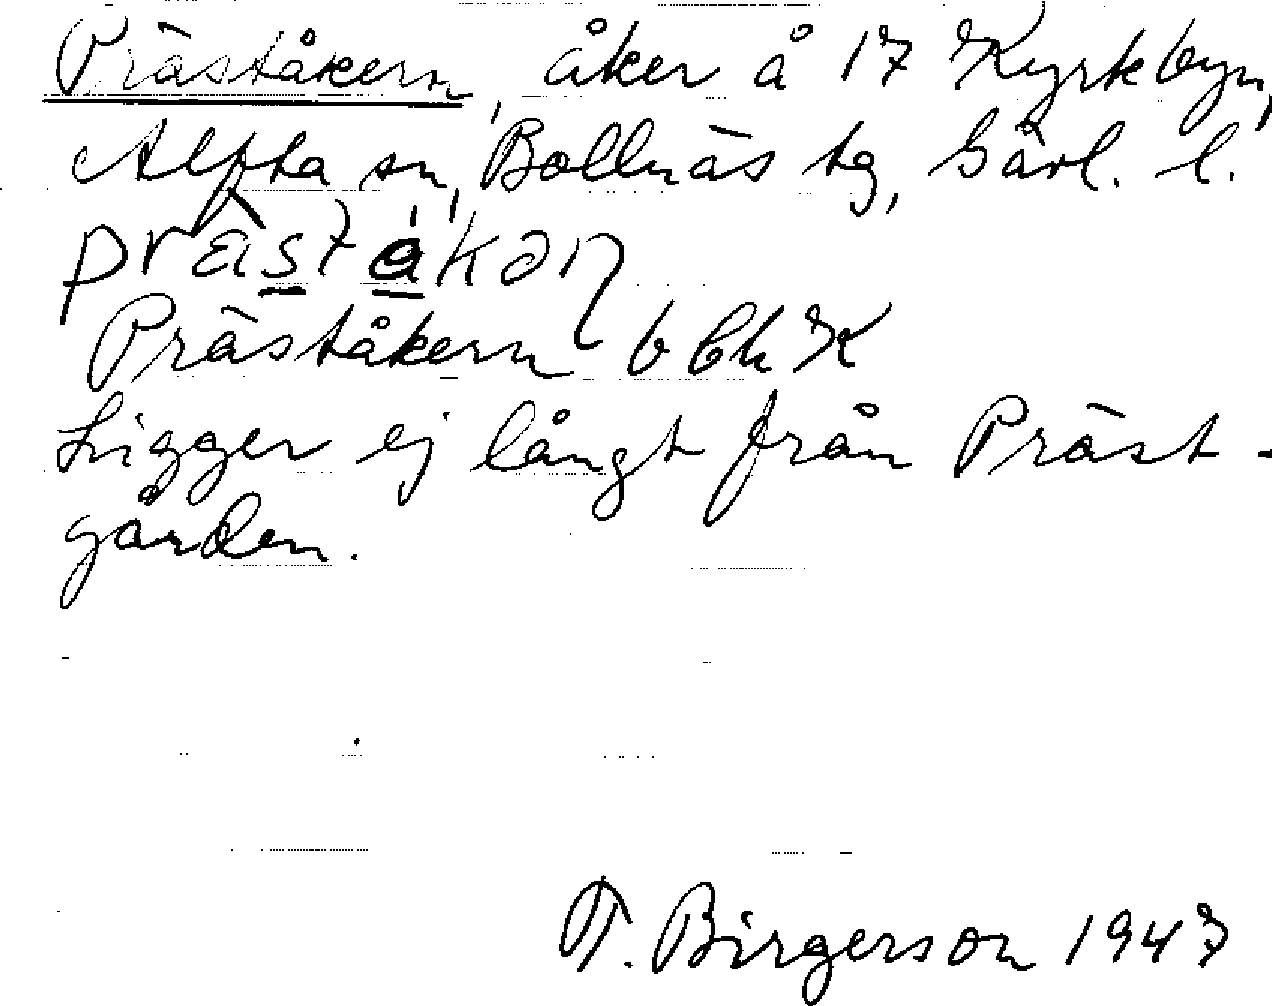 Präståkern, åker å 17 Kyrkbyn,
Alfta sn, Bollnäs tg, Gävl. l.
Präståkern b bk K
Ligger ej långt från Präst-
gården.
T. Birgerson 1947